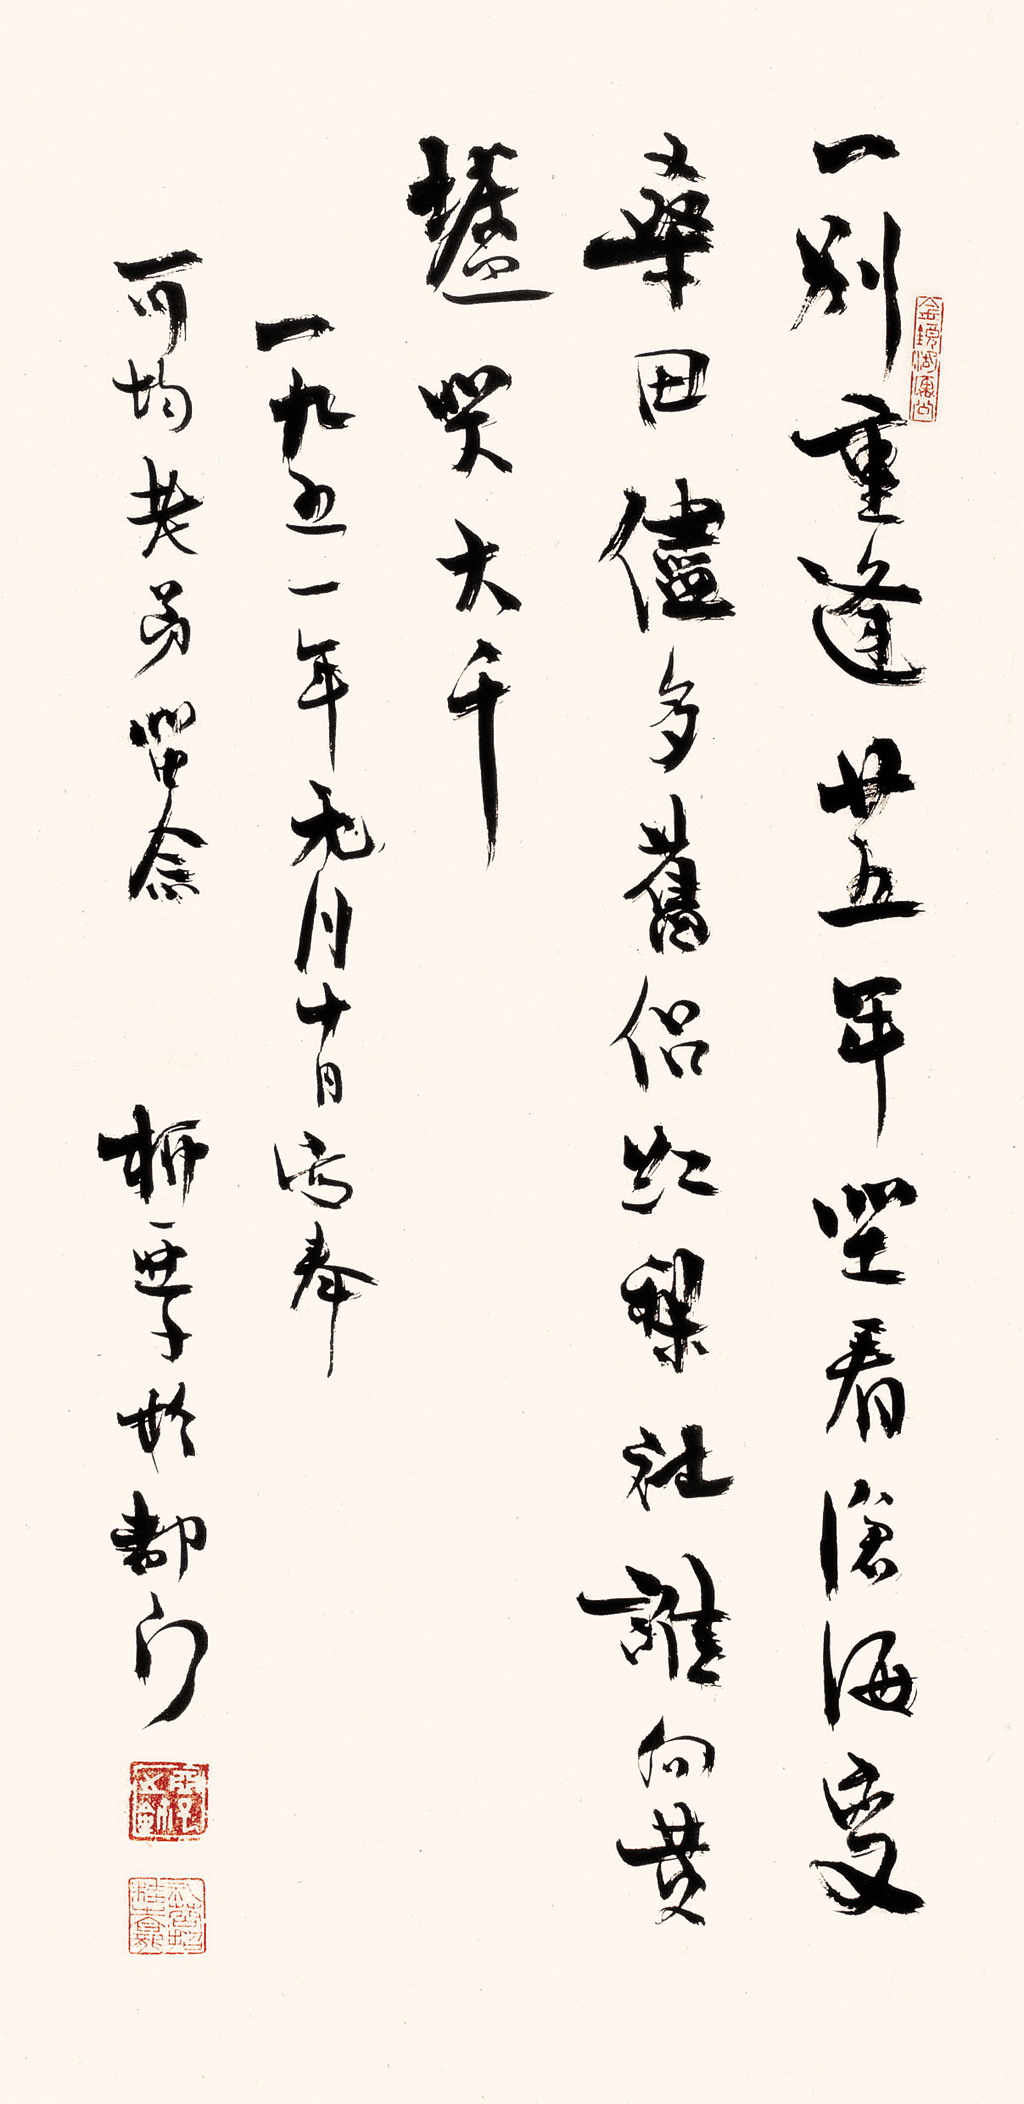 一別重逢廿五年坐看滄海變
桑田儘多舊侶紅梨社誰向黃
壚哭大千
一九五一年元月十日寫奉
可均老弟留念 柳亞子於都门